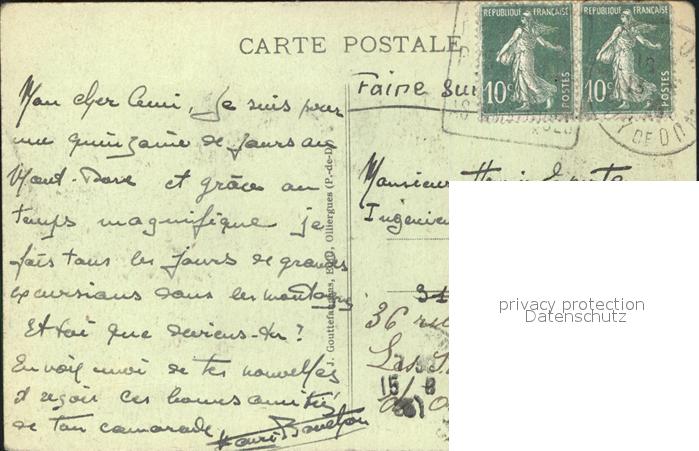 CARTE POSTALE
REPUBLIQUE FRANÇAISE
10c POSTES
REPUBLIQUE FRANÇAISE
10c POSTES
Y DE DO
Faire sui
Mon cher Ami, je suis pour
une quinzaine de jours au
Mont-Dore et grâce au
temps magnifique je
fais tous les jours de grandes
excursions dans les montagnes
Et toi que deviens-tu?
Envoie moi de tes nouvelles
et reçois ces bonnes amitiés
de ton camarade
J. Gouttefangeas, Edit., Olliergues (P.-de-D.)
Monsieur
Ingénieu
31
36 rue
Les
15 8
privacy protection
Datenschutz